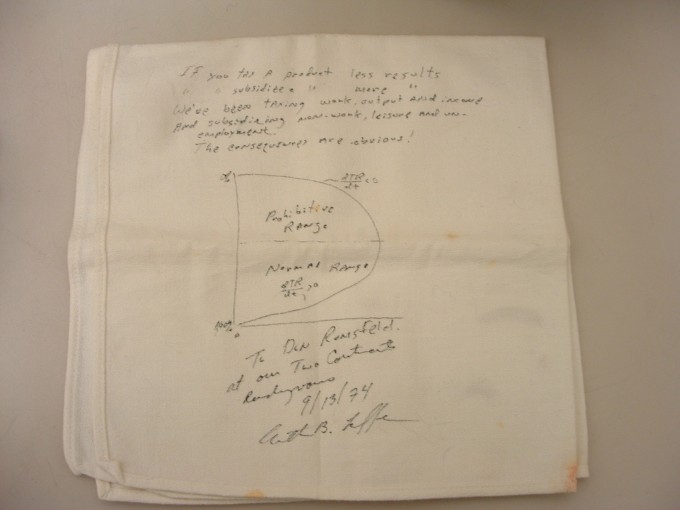 If you tax a product less results
" " subsidize a " more "
We've been taxing work, output and income
And subsidizing non-work, leisure and un-
employment.
The consequences are obvious!
dTR/dt < 0
Prohibitive
Range
Normal Range
dTR/dt > 0
0
To Don Rumsfeld.
at our Two Continents
Rendezvous
9/13/74
Arthur B. Laffer